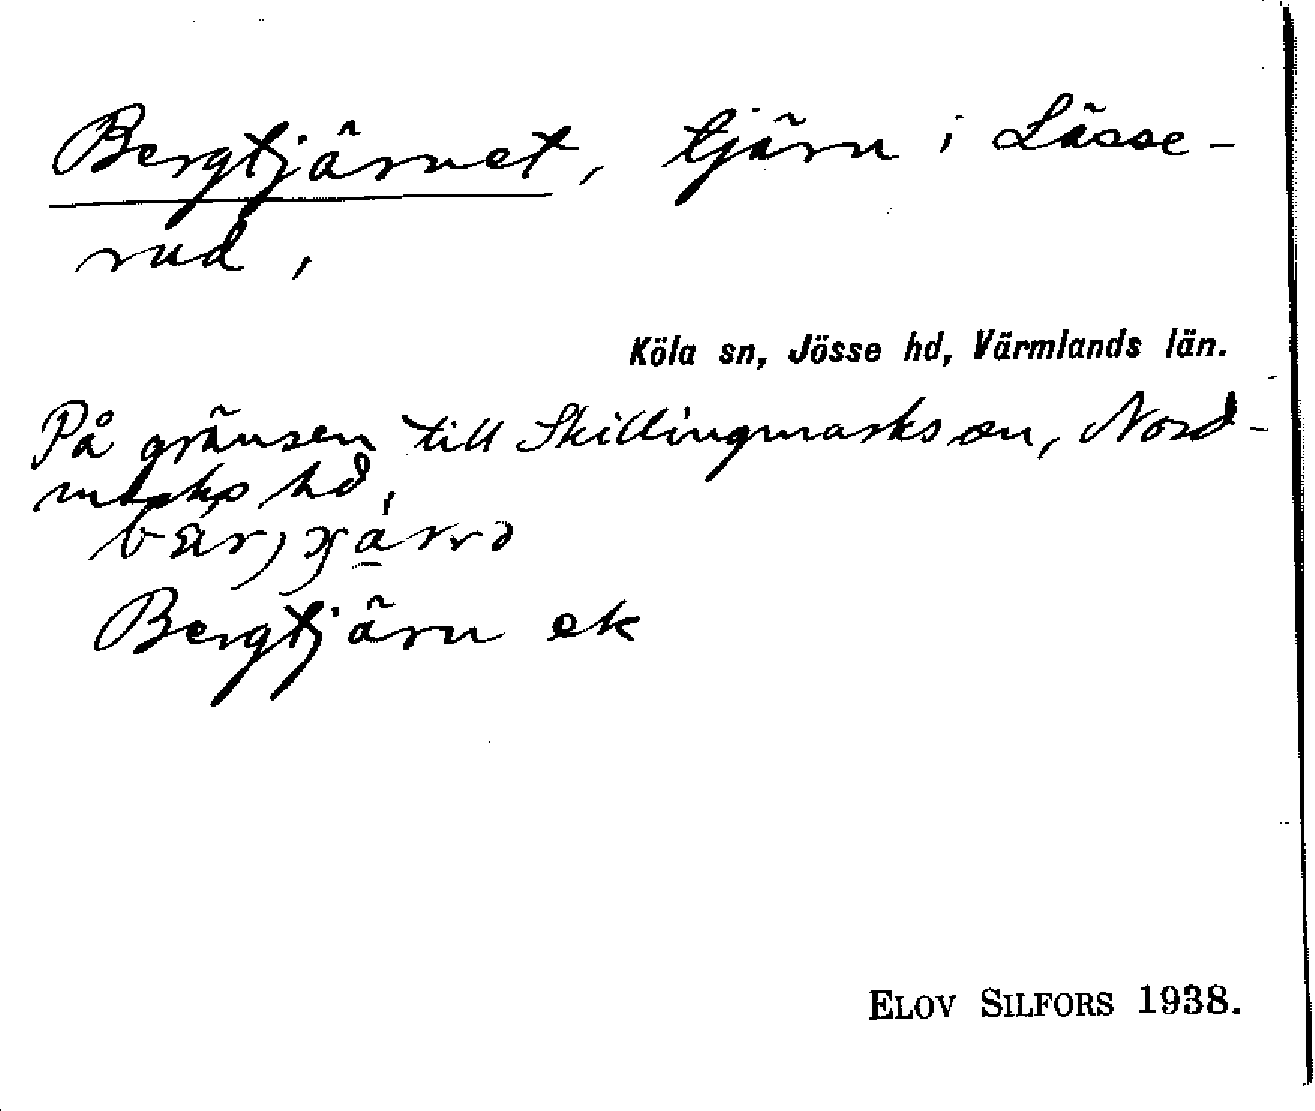 Bergtjärnet, tjärn i Lässe-
rud,
Köla sn, Jösse hd, Värmlands län.
På gränsen till Skillingmarks sn, Nord-
marks hd,
Bergtjärn ek
ELOV SILFORS 1938.